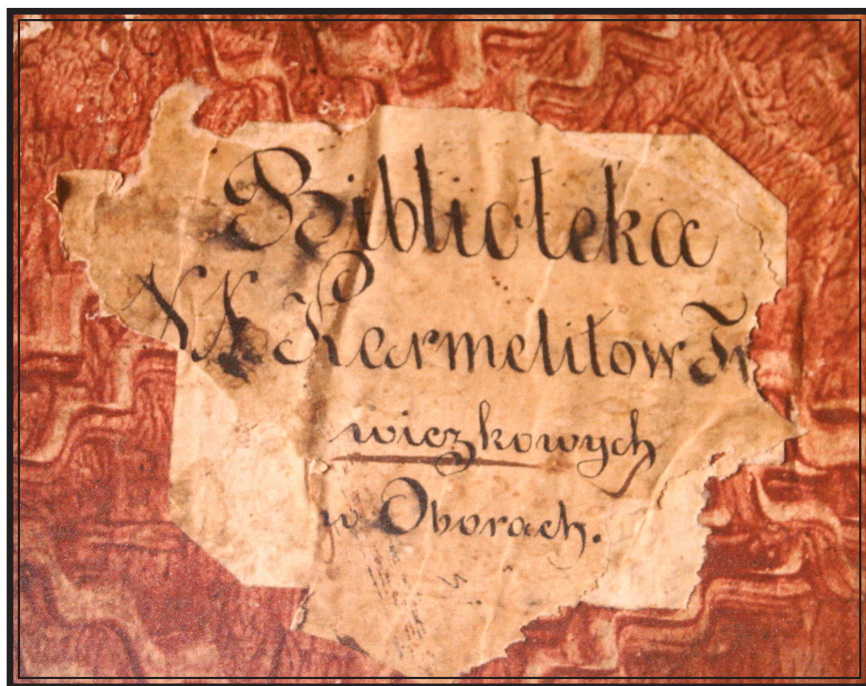 Biblioteka
XX Karmelitow Trze
wiczkowych
w Oborach.